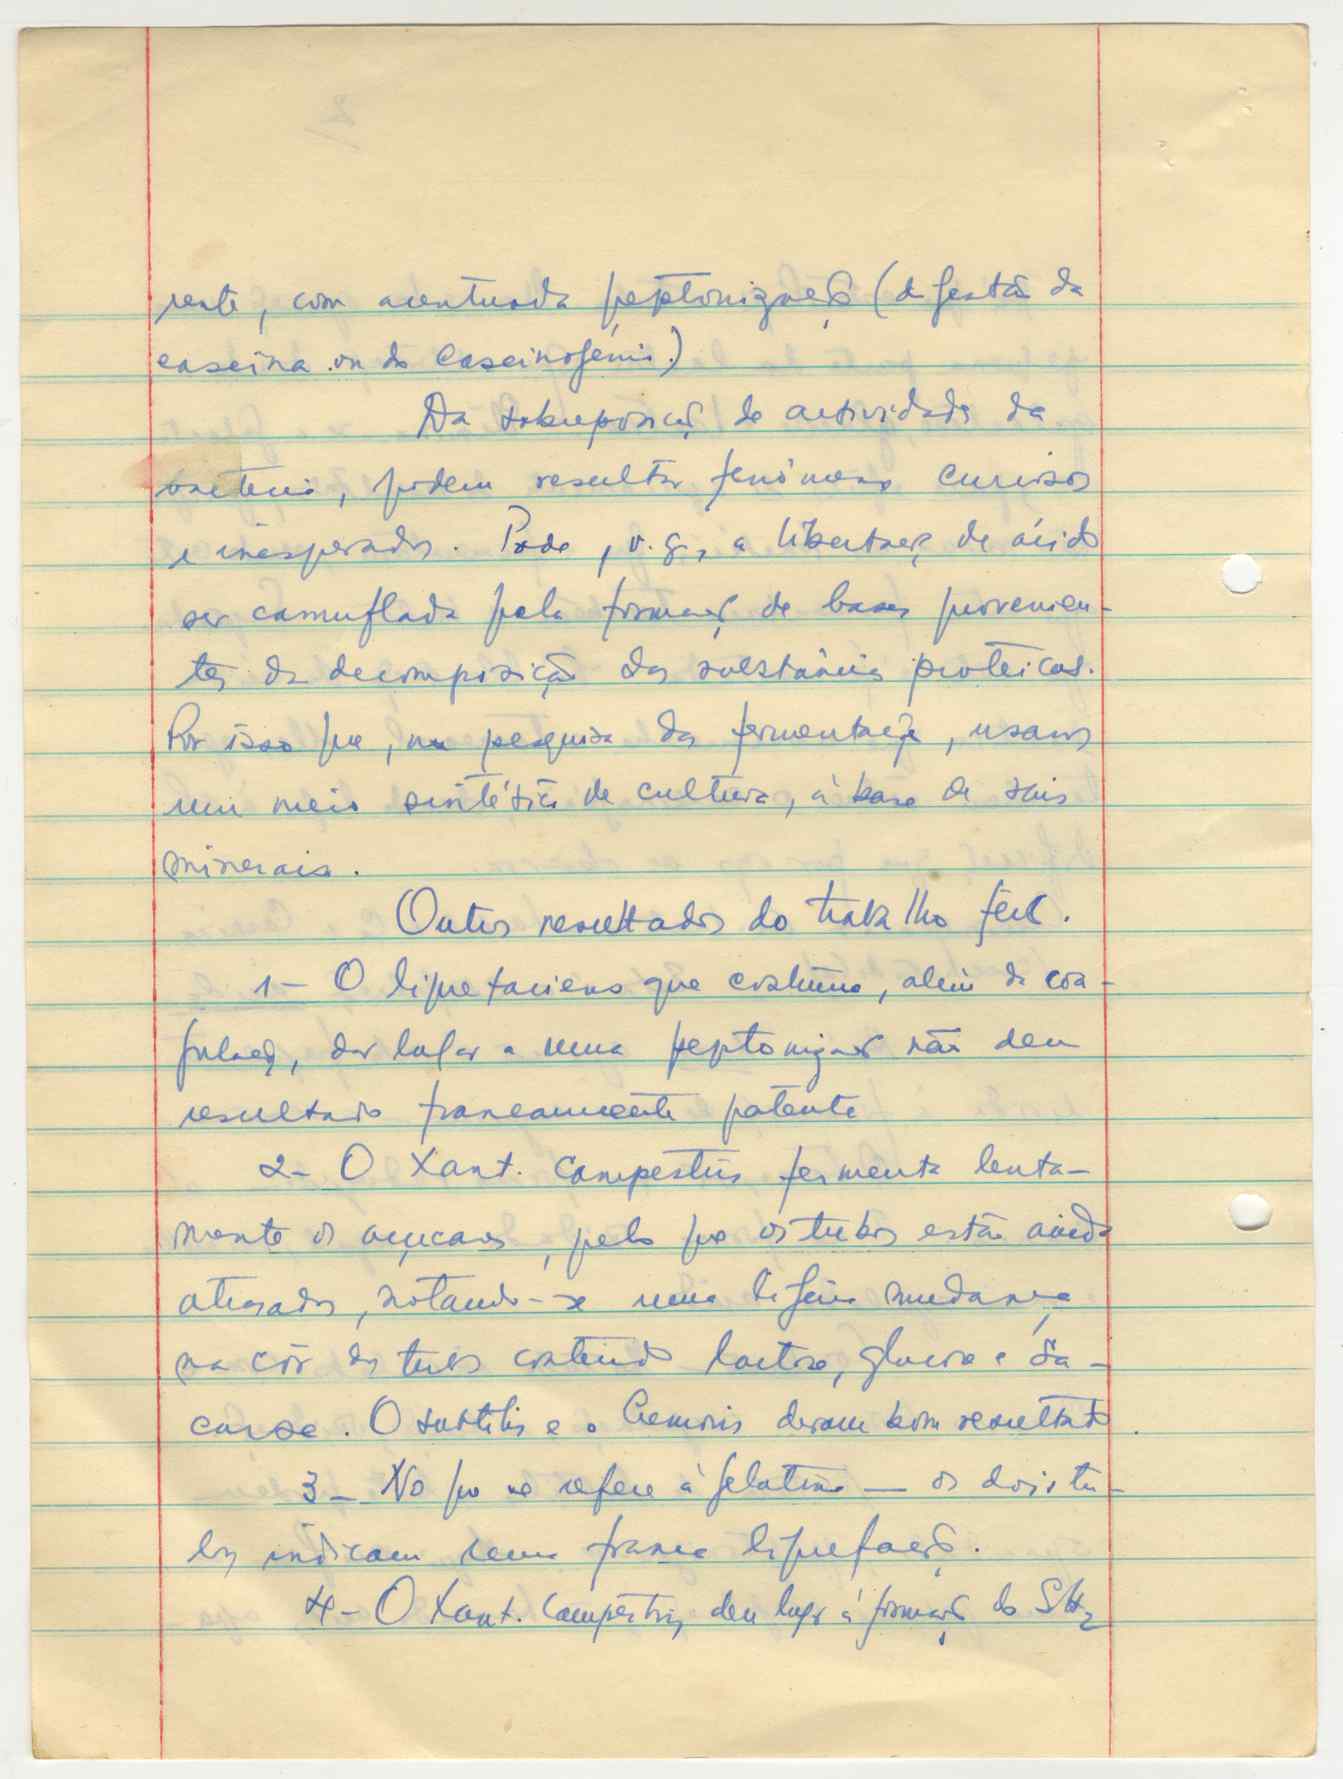 rente, com acentuada peptonização (digestão da
caseína ou do caseinogénio.)
Da sobreposição de actividade da
bactéria, podem resultar fenómenos curiosos
e inesperados. Pode, v.g., a libertação de ácido
ser camuflada pela formação de bases provenien-
tes da decomposição das substâncias proteicas.
Por isso que, na pesquisa da fermentação, usamos
um meio sintético de cultura, à base de sais
minerais.
Outros resultados do trabalho feito.
1- O liquefaciens que costuma, além da coa-
gulação, dar lugar a uma peptonização não deu
resultado francamente patente
2- O Xant. campestris fermenta lenta-
mente os açucares, pelo que os tubos estão ainda
atrasados, notando-se uma ligeira mudança
na côr dos tubos contendo lactose, glucose e Sa-
carose. O subtilis e o Cremoris deram bom resultado.
3- No que se refere à gelatina — os dois tu-
bos indicam uma franca liquefação.
4- O Xant. Campestris, deu lugar à formação do SH2